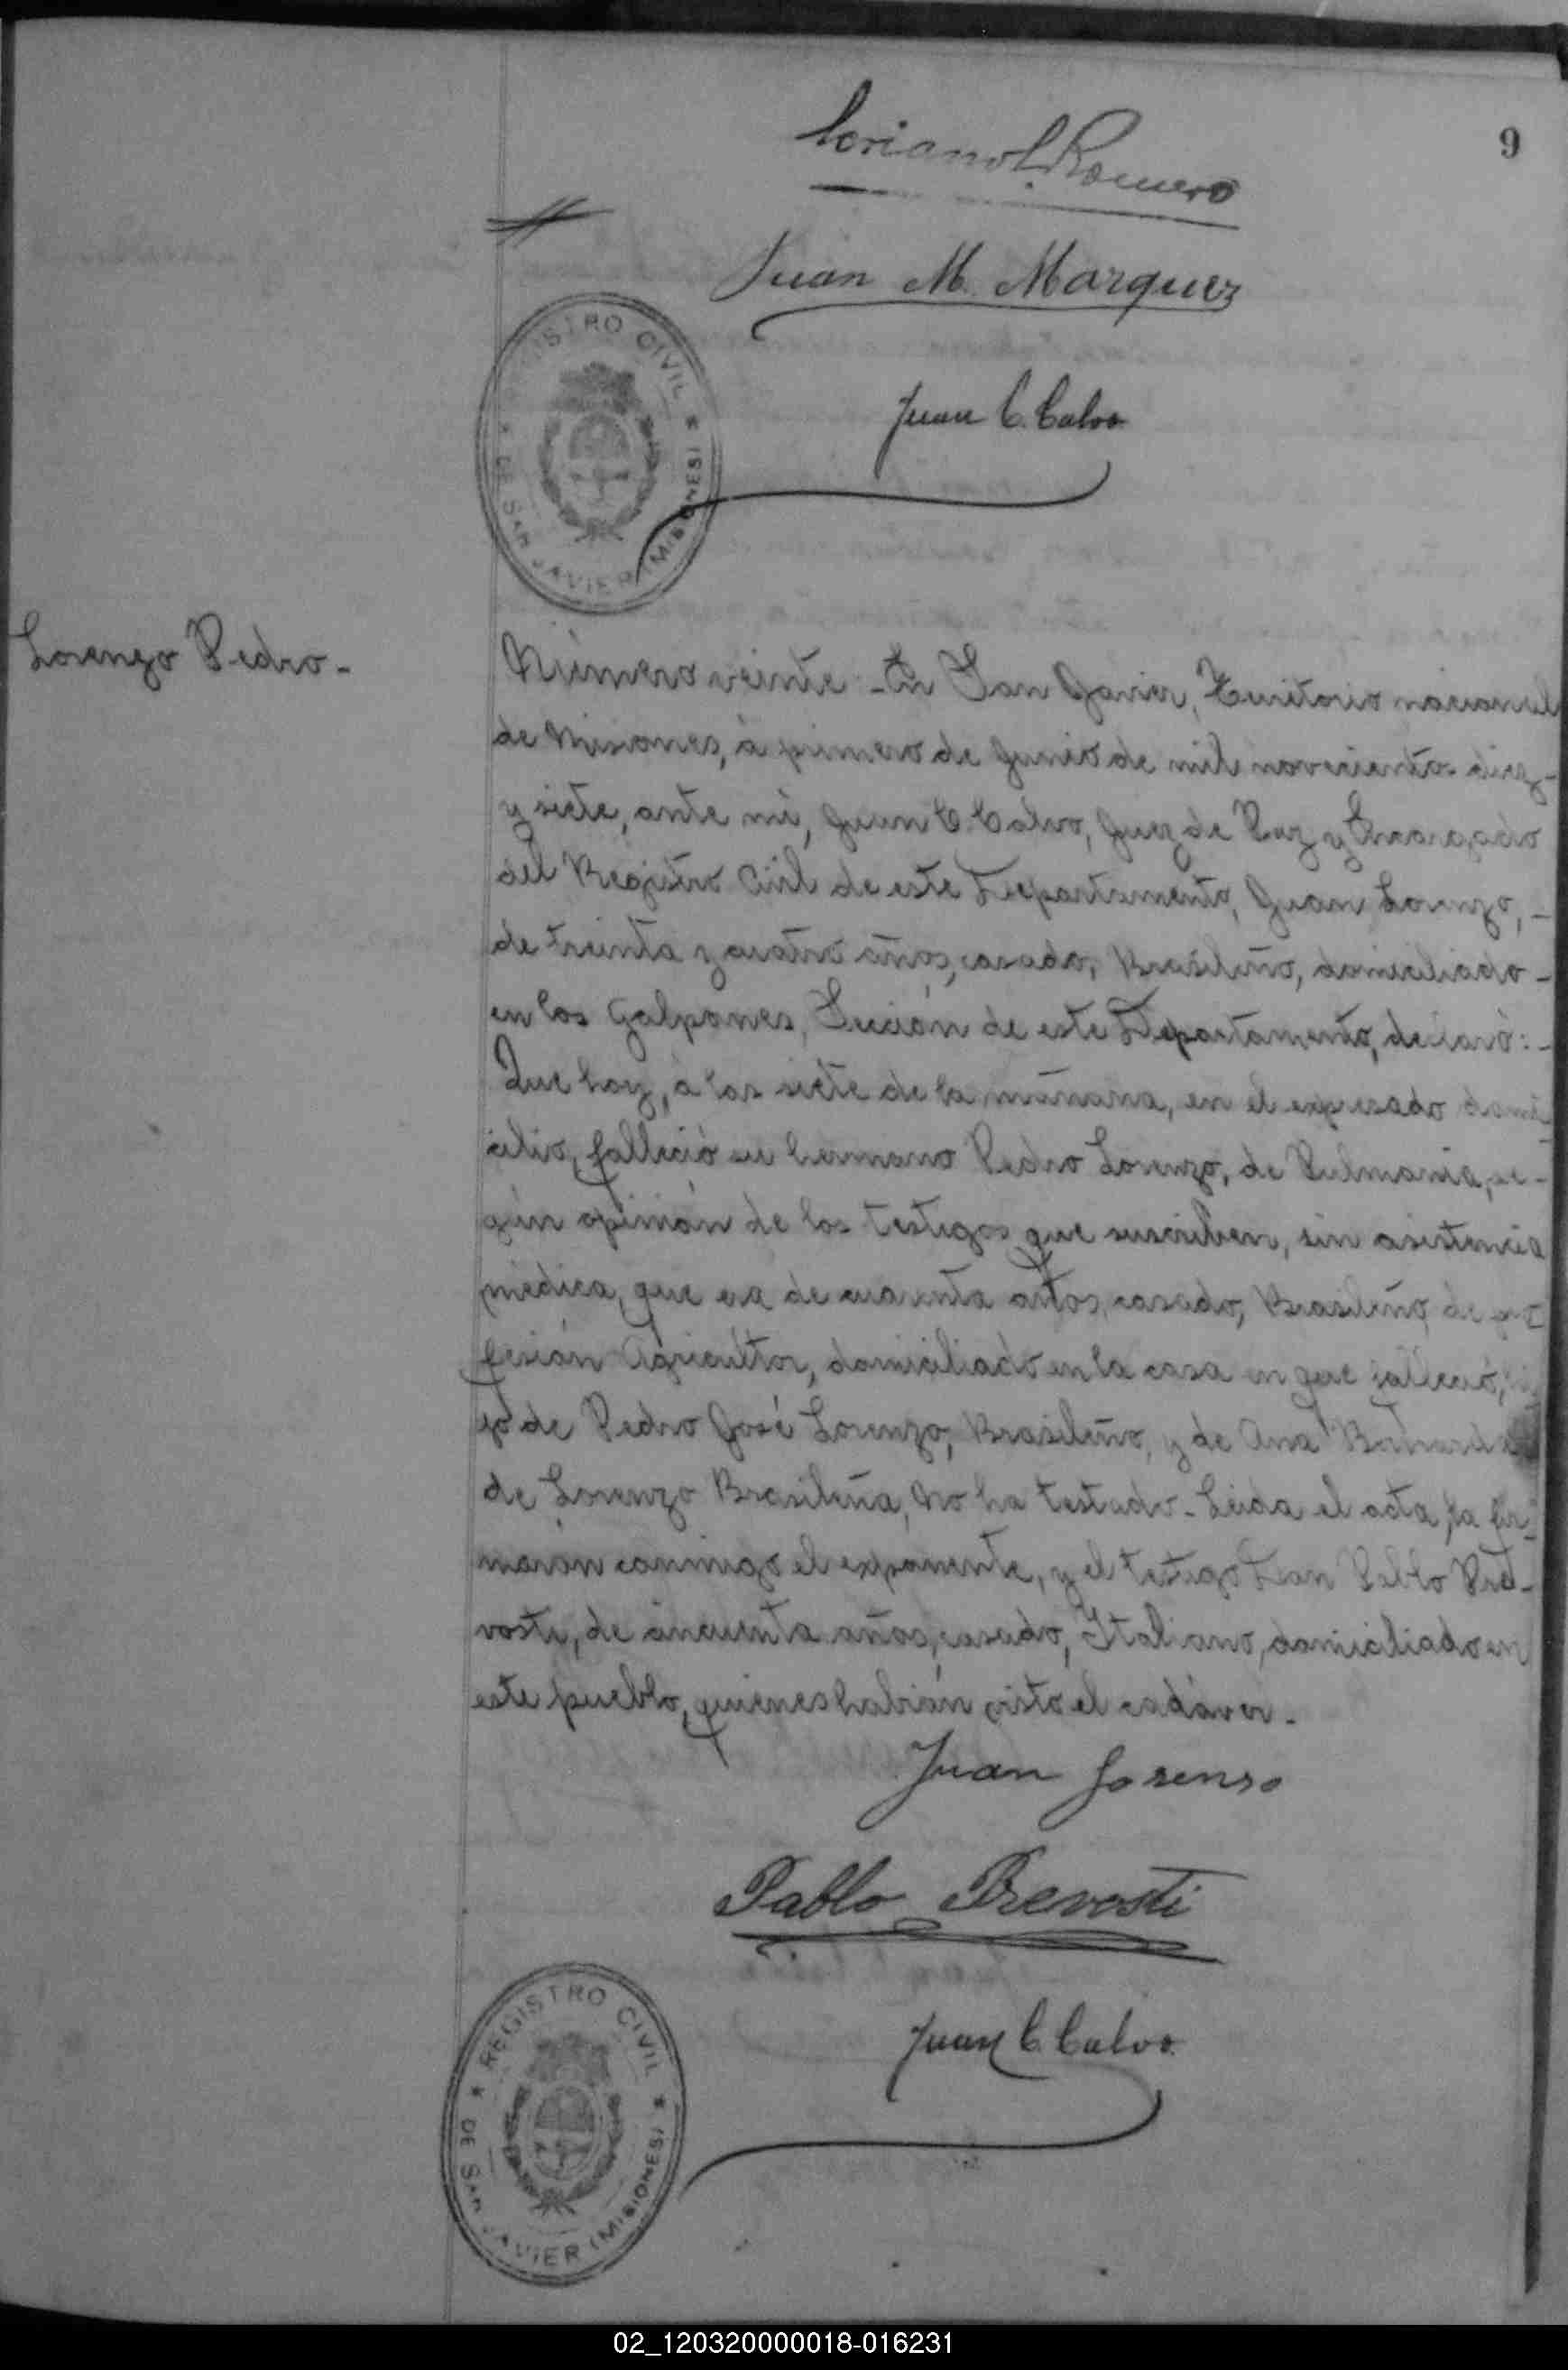 9
Soriano L. Romero
Juan M. Marquez
REGISTRO CIVIL
DE SAN JAVIER (MISIONES)
Juan C. Calvo
Lorenzo Pedro-
Número veinte - En San Javier, Territorio nacional
de Misiones, á primero de Junio de mil novecientos diez-
y siete, ante mí, Juan C. Calvo, Juez de Paz y Encargado
del Registro Civil de este Departamento, Juan Lorenzo, -
de treinta y cuatro años, casado, Brasileño, domiciliado -
en los Galpones, Sección de este Departamento, declaró: -
Que hoy, á las siete de la mañana, en el expresado domi-
cilio, falleció su hermano Pedro Lorenzo, de Pulmonia, se-
gún opinión de los testigos que suscriben, sin asistencia
médica, que era de cuarenta años, casado, Brasileño, de pro-
fesión Agricultor, domiciliado en la casa en que falleció, hi-
jo de Pedro José Lorenzo, Brasileño, y de Ana
de Lorenzo Brasileña, No ha testado - Leida el acta, la fir-
maron conmigo el exponente, y el testigo Don Pablo Pre-
vosti, de cincuenta años, casado, Italiano, domiciliado en
este pueblo, quienes habián visto el cadáver -
Juan Lorenso
Pablo Prevosti
REGISTRO CIVIL
DE SAN JAVIER (MISIONES)
Juan C. Calvo
02_120320000018-016231